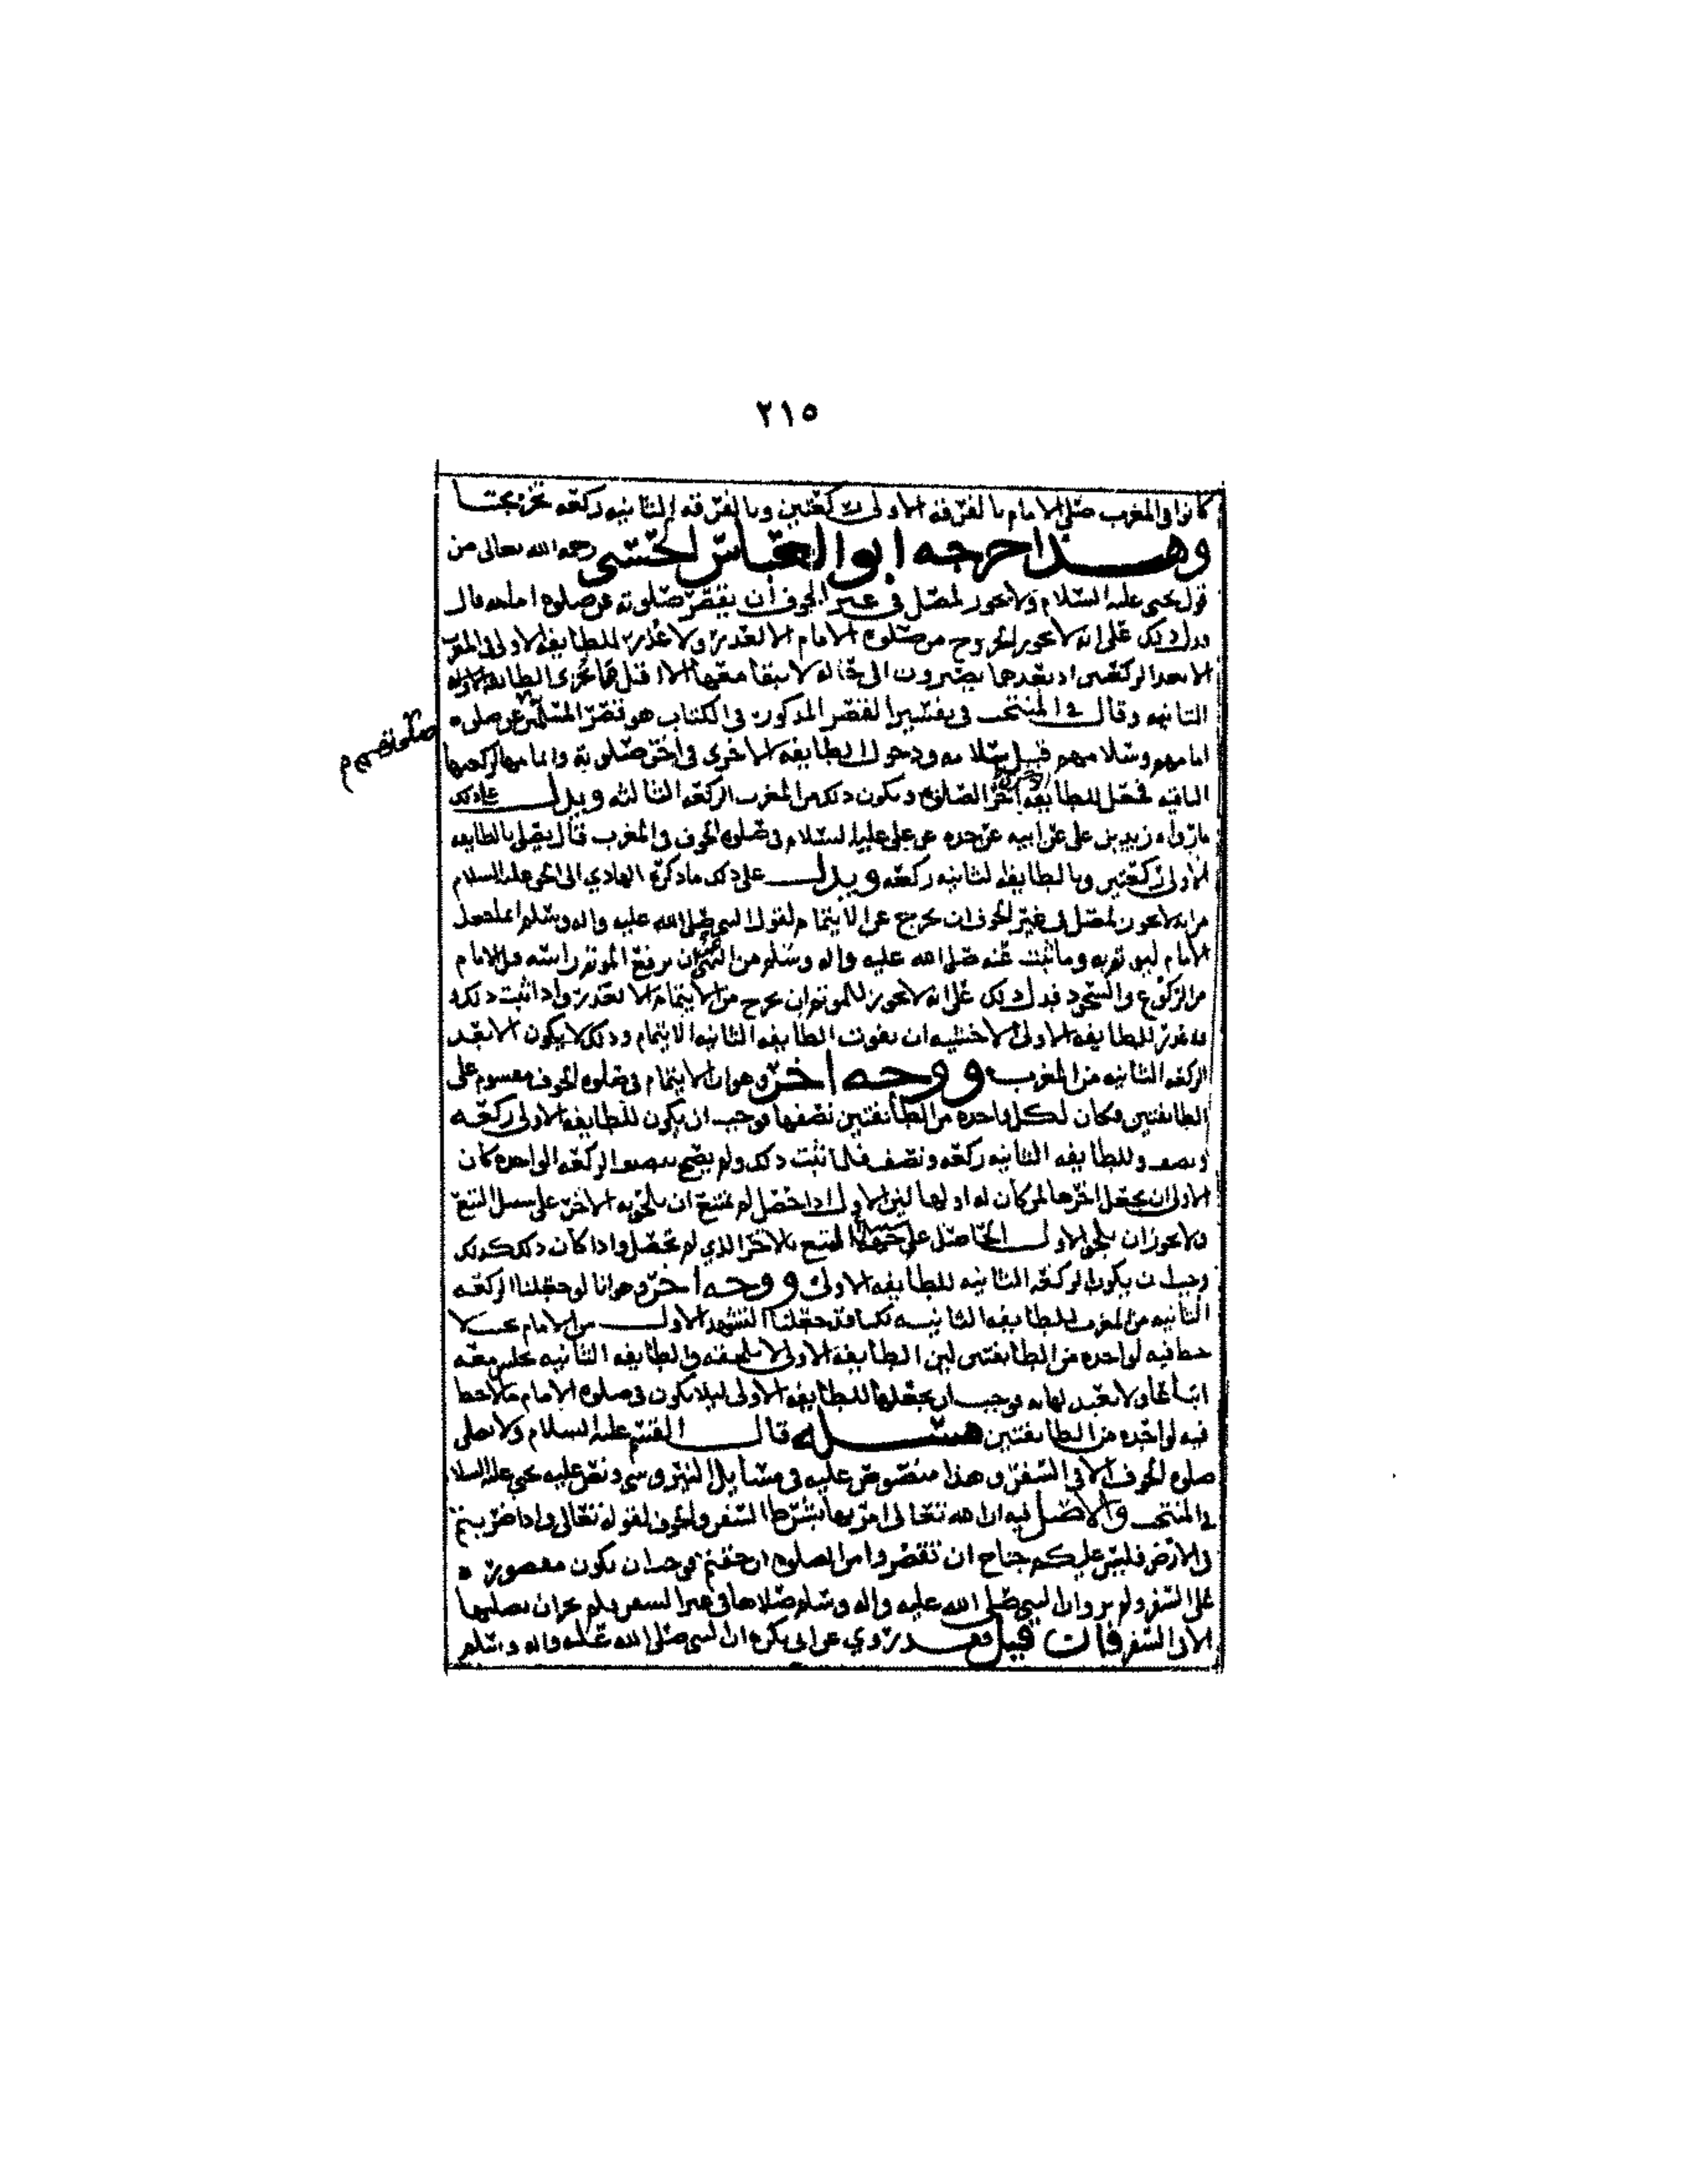 ٢١٥
كانوا في المغرب صلى الامام بالفرقه الاولى ركعتين وبالفرقه الثانيه ركعه تخريجا
وهذا خرجه ابو العباس الحسني رحمه الله تعالى من
قول يحيى عليه السلام ولا يجوز لمصل في غير الخوف ان يقصر صلوته عن صلوة امامه قال
ودل ذلك على انه لا يجوز الخروج من صلوة الامام الا لعذر ولا عذر للطايفه الاولى في المغرب
الا بعد الركعتين اذ بعدها يصيرون الى حاله لا يبقا معها الا
الثانيه وقال في المنتخب في تفسير القصر المذكور في الكتاب هو قصر المسلمين عن صلوة
امامهم وسلامهم قبل سلامه ودخول الطايفه الاخرى في اخر صلوته وايتمامها الركعه
صلوتهم
الباقيه فجعل للطايفه اخر الصلوة ويكون ذلك من المغرب الركعه الثالثه ويدل على ذلك
ما رواه زيد بن علي عن ابيه عن جده عن علي عليه السلام في صلوة الخوف في المغرب قال يصلي بالطايفه
الاولى ركعتين وبالطايفه الثانيه ركعه ويدل على ذلك ما ذكره الهادي الى الحق عليه السلام
من انه لا يجوز لمصل في غير الخوف ان يخرج عن الايتمام لقول النبي صلى الله عليه واله وسلم انما جعل
الامام ليوتم به وما ثبت عنه صلى الله عليه واله وسلم من النهي عن ان يرفع الموتم راسه قبل الامام
من الركوع والسجود فدل ذلك على انه لا يجوز للموتم ان يخرج من الايتمام الا لعذر واذا ثبت ذلك
فلا عذر للطايفه الاولى الا خشيه ان يفوت الطايفه الثانيه الايتمام وذلك لا يكون الا بعد
الركعه الثانيه من المغرب ووجه اخر وهو ان الايتمام في صلوة الخوف مقسوم على
الطايفتين فكان لكل واحده من الطايفتين نصفها فوجب ان يكون للطايفه الاولى ركعه
ونصف وللطايفه الثانيه ركعه ونصف فلما ثبت ذلك ولم يصح تبعيض الركعه الواحده كان
الاولى ان يجعل اخرها لمن كان له اولها لان الاول اذا حصل لم يمتنع ان يلحق به الاخر على سبيل التبع
ولا يجوز ان يلحق الاول الحاصل على التبع بالاخر الذي لم يحصل واذا كان ذلك كذلك
وجب ان يكون الركعه الثانيه للطايفه الاولى ووجه اخر وهو انا لو جعلنا الركعه
الثانيه من المغرب للطايفه الثانيه لكنا قد جعلنا التشهد الاول من الامام مما لا
حظ فيه لواحده من الطايفتين لان الطايفه الاولى لا تلحقه والطايفه الثانيه تجلس معه
اتباعا ولا تعتد به فوجب ان يجعلها للطايفه الاولى ليلا يكون في صلوة الامام ما لا حظ
فيه لواحده من الطايفتين مسئله قال القسم عليه السلام ولا تصلى
صلوة الخوف الا في السفر وهذا منصوص عليه في مسايل النيروسي ونص عليه يحيى عليه السلام
في المنتخب والاصل فيه ان الله تعالى امر بها بشرط السفر والخوف لقوله تعالى واذا ضربتم
في الارض فليس عليكم جناح ان تقصروا من الصلوة ان خفتم فوجب ان تكون مقصورة
على السفر ولم يرو ان النبي صلى الله عليه واله وسلم صلاها في غير السفر فلم يجز ان نصليها
الا في السفر فان قيل فقد روي عن ابي بكره ان النبي صلى الله عليه واله وسلم